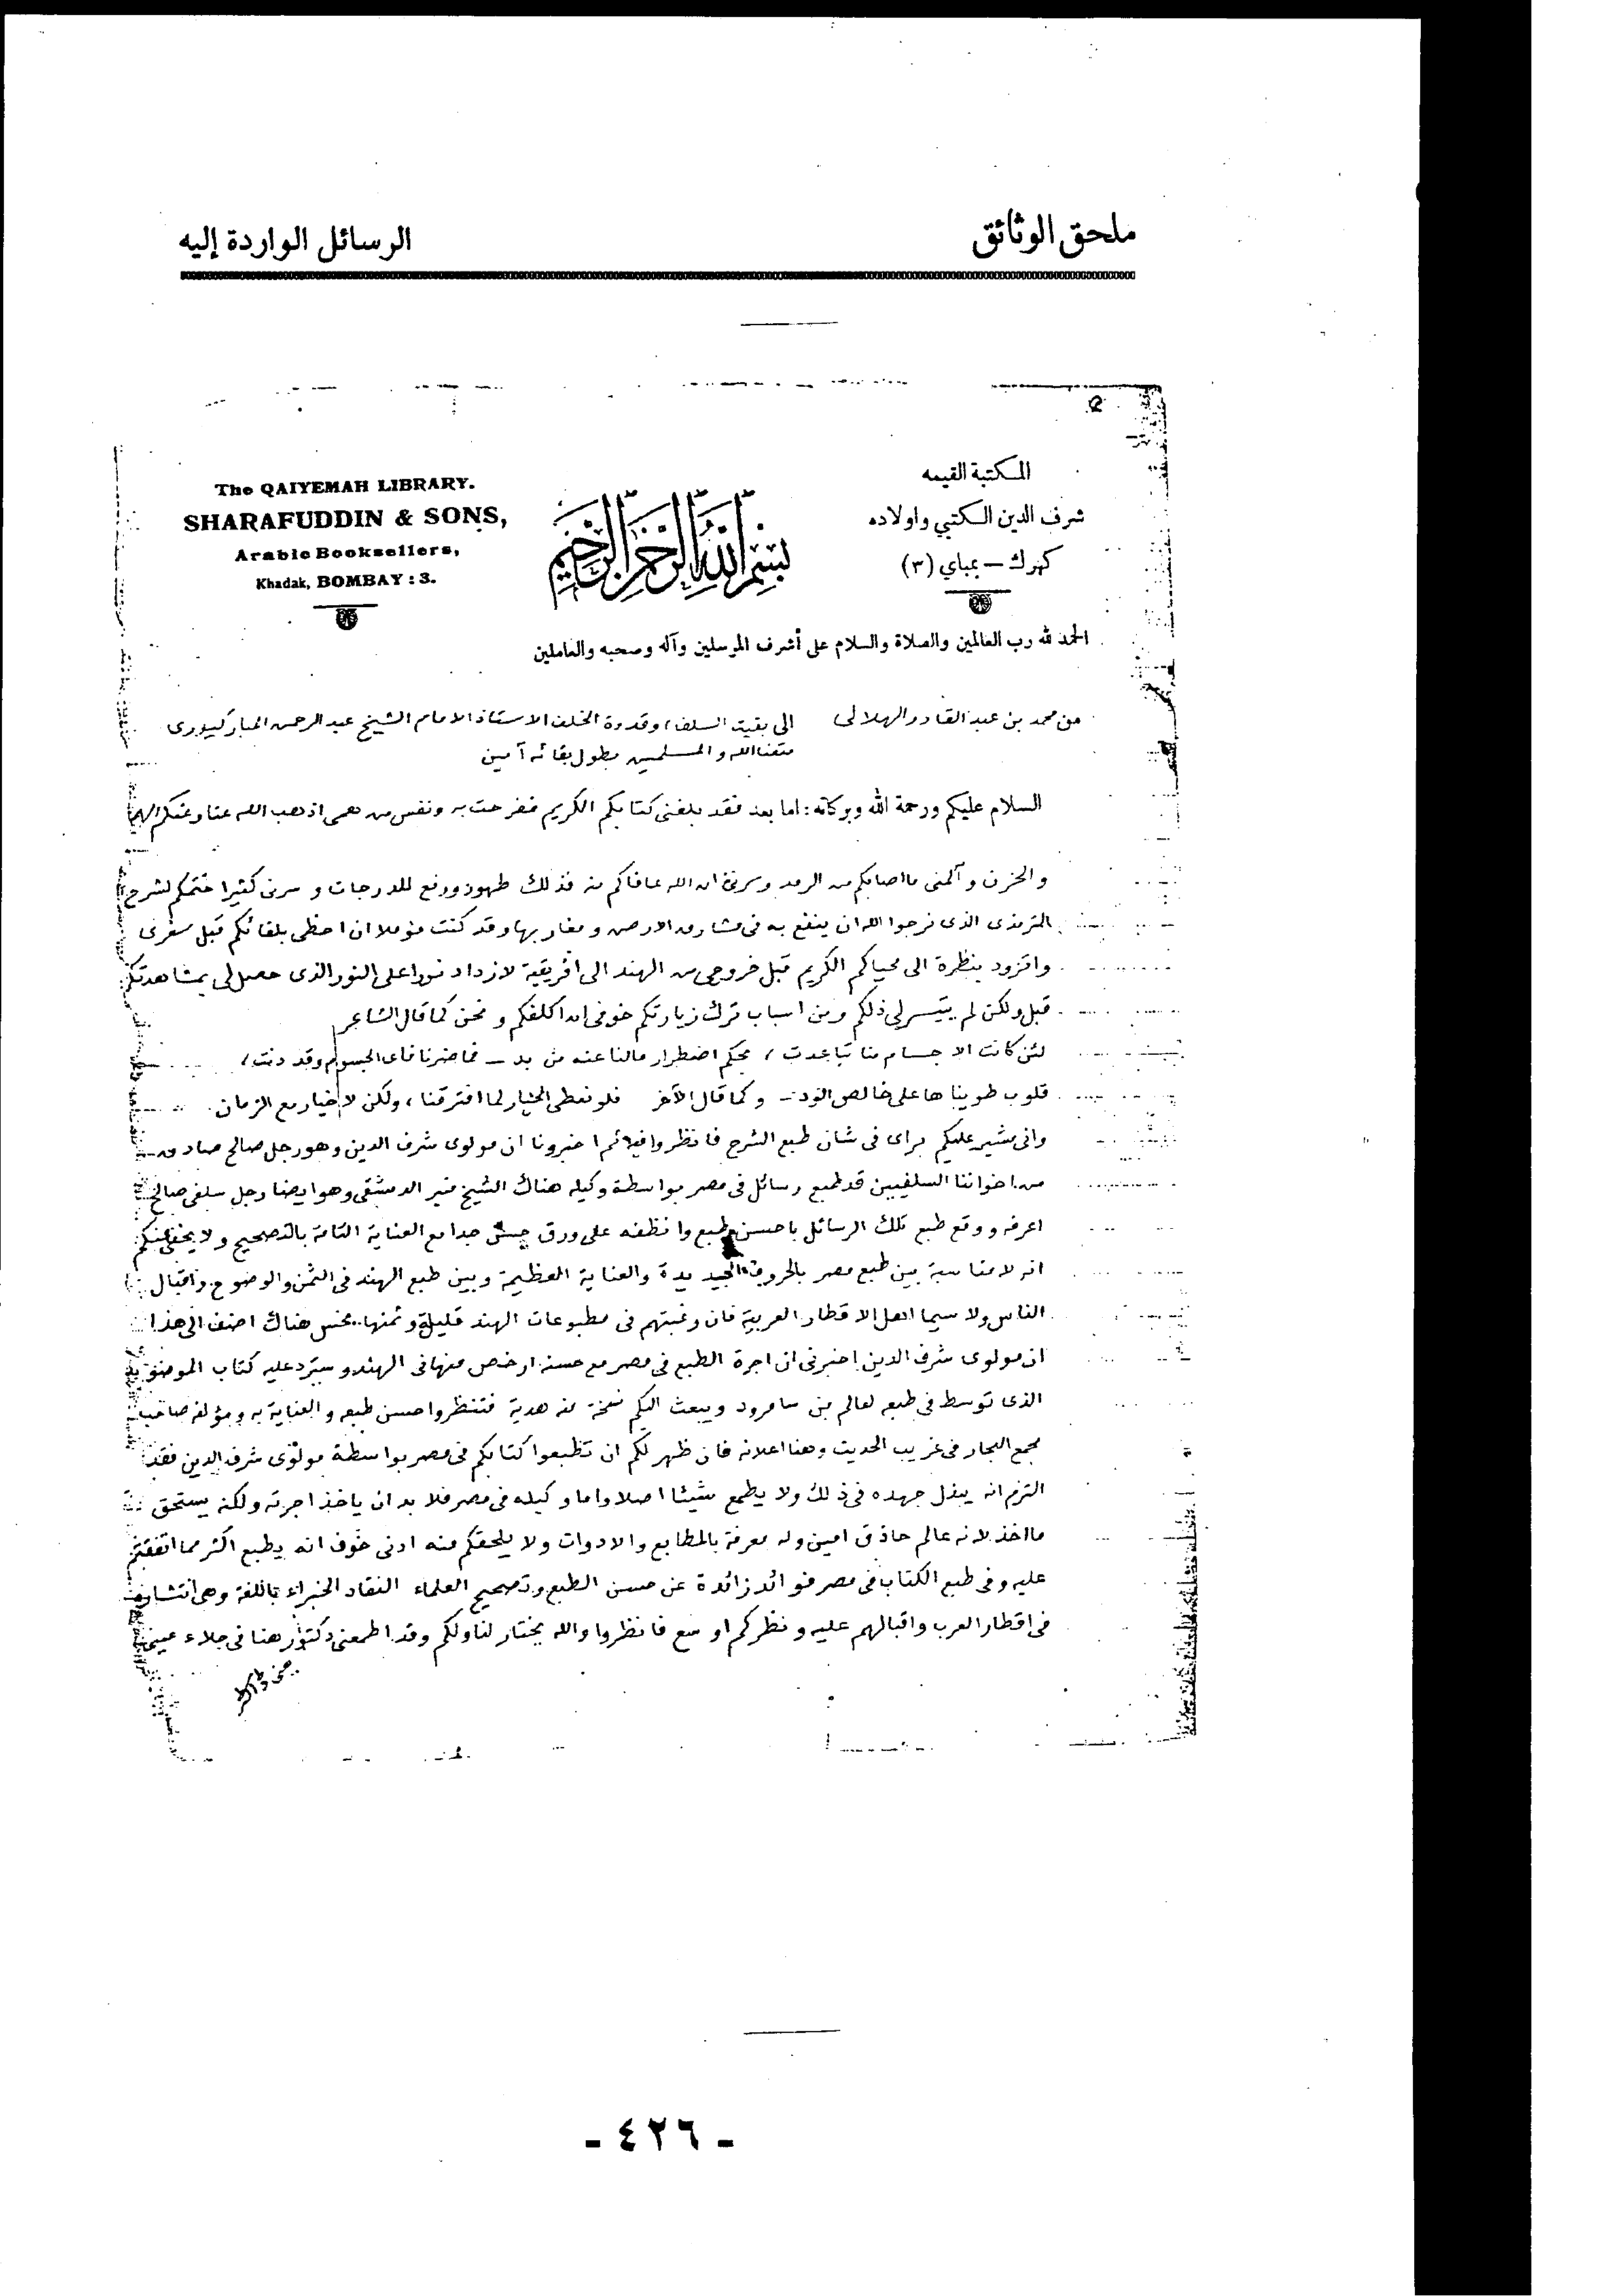 ملحق الوثائق
الرسائل الواردة إليه
المكتبة القيمه
شرف الدين الكتبي واولاده
كهرك – بمباي (٣)
بسم الله الرحمن الرحيم
The QAIYEMAH LIBRARY.
SHARAFUDDIN & SONS,
Arabic Booksellers,
Khadak, BOMBAY : 3.
الحمد لله رب العالمين والصلاة والسلام على أشرف المرسلين وآله وصحبه والعاملين
من محمد بن عبد القادر الهلالى الى بقية السلف، وقدوة الخلف الاستاذ الامام الشيخ عبد الرحمن المباركپورى
متعنا الله والمسلمين بطول بقائه آمين
السلام عليكم ورحمة الله وبركاته: اما بعد فقد بلغنى كتابكم الكريم ففرحت به ونفس من همى اذهب الله عنا وعنكم الهم
والحزن وآلمنى ما اصابكم من الرمد وسرنى ان الله عافاكم منه فذلك طهور ورفع للدرجات وسرنى كثيرا ختمكم لشرح
الترمذى الذى نرجوا الله ان ينفع به فى مشارق الارض ومغاربها وقد كنت مؤملا ان احظى بلقائكم قبل سفرى
واتزود بنظرة الى محياكم الكريم قبل خروجى من الهند الى افريقية لازداد نورا على النور الذى حصل لى بمشاهدتكم
قبل ولكن لم يتيسر لى ذلكم ومن اسباب ترك زيارتكم خوفى ان اكلفكم ونحن كما قال الشاعر
لئن كانت الاجسام منا تباعدت، بحكم اضطرار مالنا عنه من بد – فما ضرنا نأى الجسوم وقد دنت،
قلوب طويناها على خالص الود – وكما قال الآخر فلو نعطى الخيار لما افترقنا، ولكن لا خيار مع الزمان
وانى مشير عليكم براى فى شان طبع الشرح فانظروا فيه ثم اخبرونا ان مولوى شرف الدين وهو رجل صالح صادق
من اخواننا السلفيين قد طبع رسائل فى مصر بواسطة وكيله هناك الشيخ منير الدمشقى وهو ايضا رجل سلفى صالح
اعرفه ووقع طبع تلك الرسائل باحسن طبع وانظفه على ورق حسن جدا مع العناية التامة بالتصحيح ولا يخفى عنكم
انه لا مناسبة بين طبع مصر بالحروف الجيديدة والعناية العظيمة وبين طبع الهند فى الثمن والوضوح واقبال
الناس ولا سيما اهل الاقطار العربية فان رغبتهم فى مطبوعات الهند قليلة وثمنها بخس هناك اضف الى هذا
ان مولوى شرف الدين اخبرنى ان اجرة الطبع فى مصر مع حسنه ارخص منها فى الهند وسيرد عليه كتاب الموضوعات
الذى توسط فى طبعه لعالم من سامرود ويبعث اليكم نسخة منه هدية فتنظروا حسن طبعه والعناية به ومؤلفه صاحب
مجمع البحار فى غريب الحديث وهنا اعلانه فان ظهر لكم ان تطبعوا كتابكم فى مصر بواسطة مولوى شرف الدين فقد
التزم انه يبذل جهده فى ذلك ولا يطمع شيئا اصلا واما وكيله فى مصر فلا بد ان ياخذ اجرته ولكنه يستحق
ما اخذ لانه عالم حاذق امين وله معرفة بالمطابع والادوات ولا يلحقكم منه ادنى خوف انه يطبع اكثر مما اتفقتم
عليه وفى طبع الكتاب فى مصر فوائد زائدة عن حسن الطبع وتصحيح العلماء النقاد الخبراء باللغة وهى انتشاره
فى اقطار العرب واقبالهم عليه ونظركم اوسع فانظروا والله يختار لنا ولكم وقد اطمعنى دكتور هنا فى جلاء عينى
- ٤٢٦ -